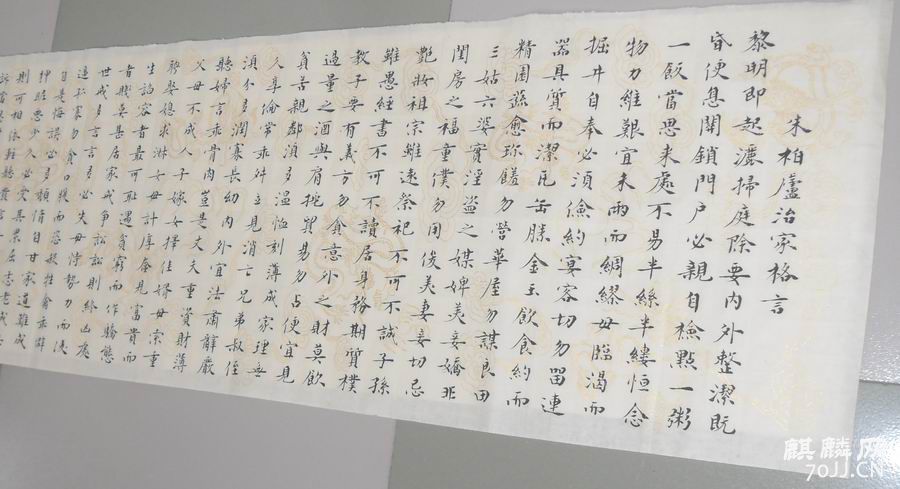 朱柏廬治家格言
黎明即起灑掃庭除要内外整潔既
昏便息關鎖門户必親自檢點一粥
一飯當思来處不易半絲半縷恒念
物力維艱宜未雨而綢繆毋臨渴而
掘井自奉必須儉約宴客切勿留連
器具質而潔瓦缶勝金玉飲食約而
精園蔬愈珍饈勿營華屋勿謀良田
三姑六婆實淫盜之媒婢美妾嬌非
閨房之福童僕勿用俊美妻妾切忌
艷妝祖宗雖遠祭祀不可不誠子孫
雖愚經書不可不讀居身務期質樸
教子要有義方勿貪意外之財莫飲
過量之酒與肩挑貿易勿占便宜見
貧苦親鄰須多温恤刻薄成家理無
久享倫常乖舛立見消亡兄弟叔侄
須分多潤寡長幼内外宜法肅辭嚴
聽婦言乖骨肉豈是丈夫重資財薄
父母不成人子嫁女擇佳婿毋索重
聘娶媳求淑女毋計厚奩見富貴而
生諂容者最可耻遇貧窮而作驕態
者賤莫甚居家戒爭訟訟則終凶處
世戒多言言多必失毋恃勢力而凌
逼孤寡勿貪口腹而恣殺牲禽乖僻
自是悔誤必多頹惰自甘家道難成
狎昵惡少久必受其累屈志老成急
則可相依輕聽發言
麒麟网
70JJ.CN